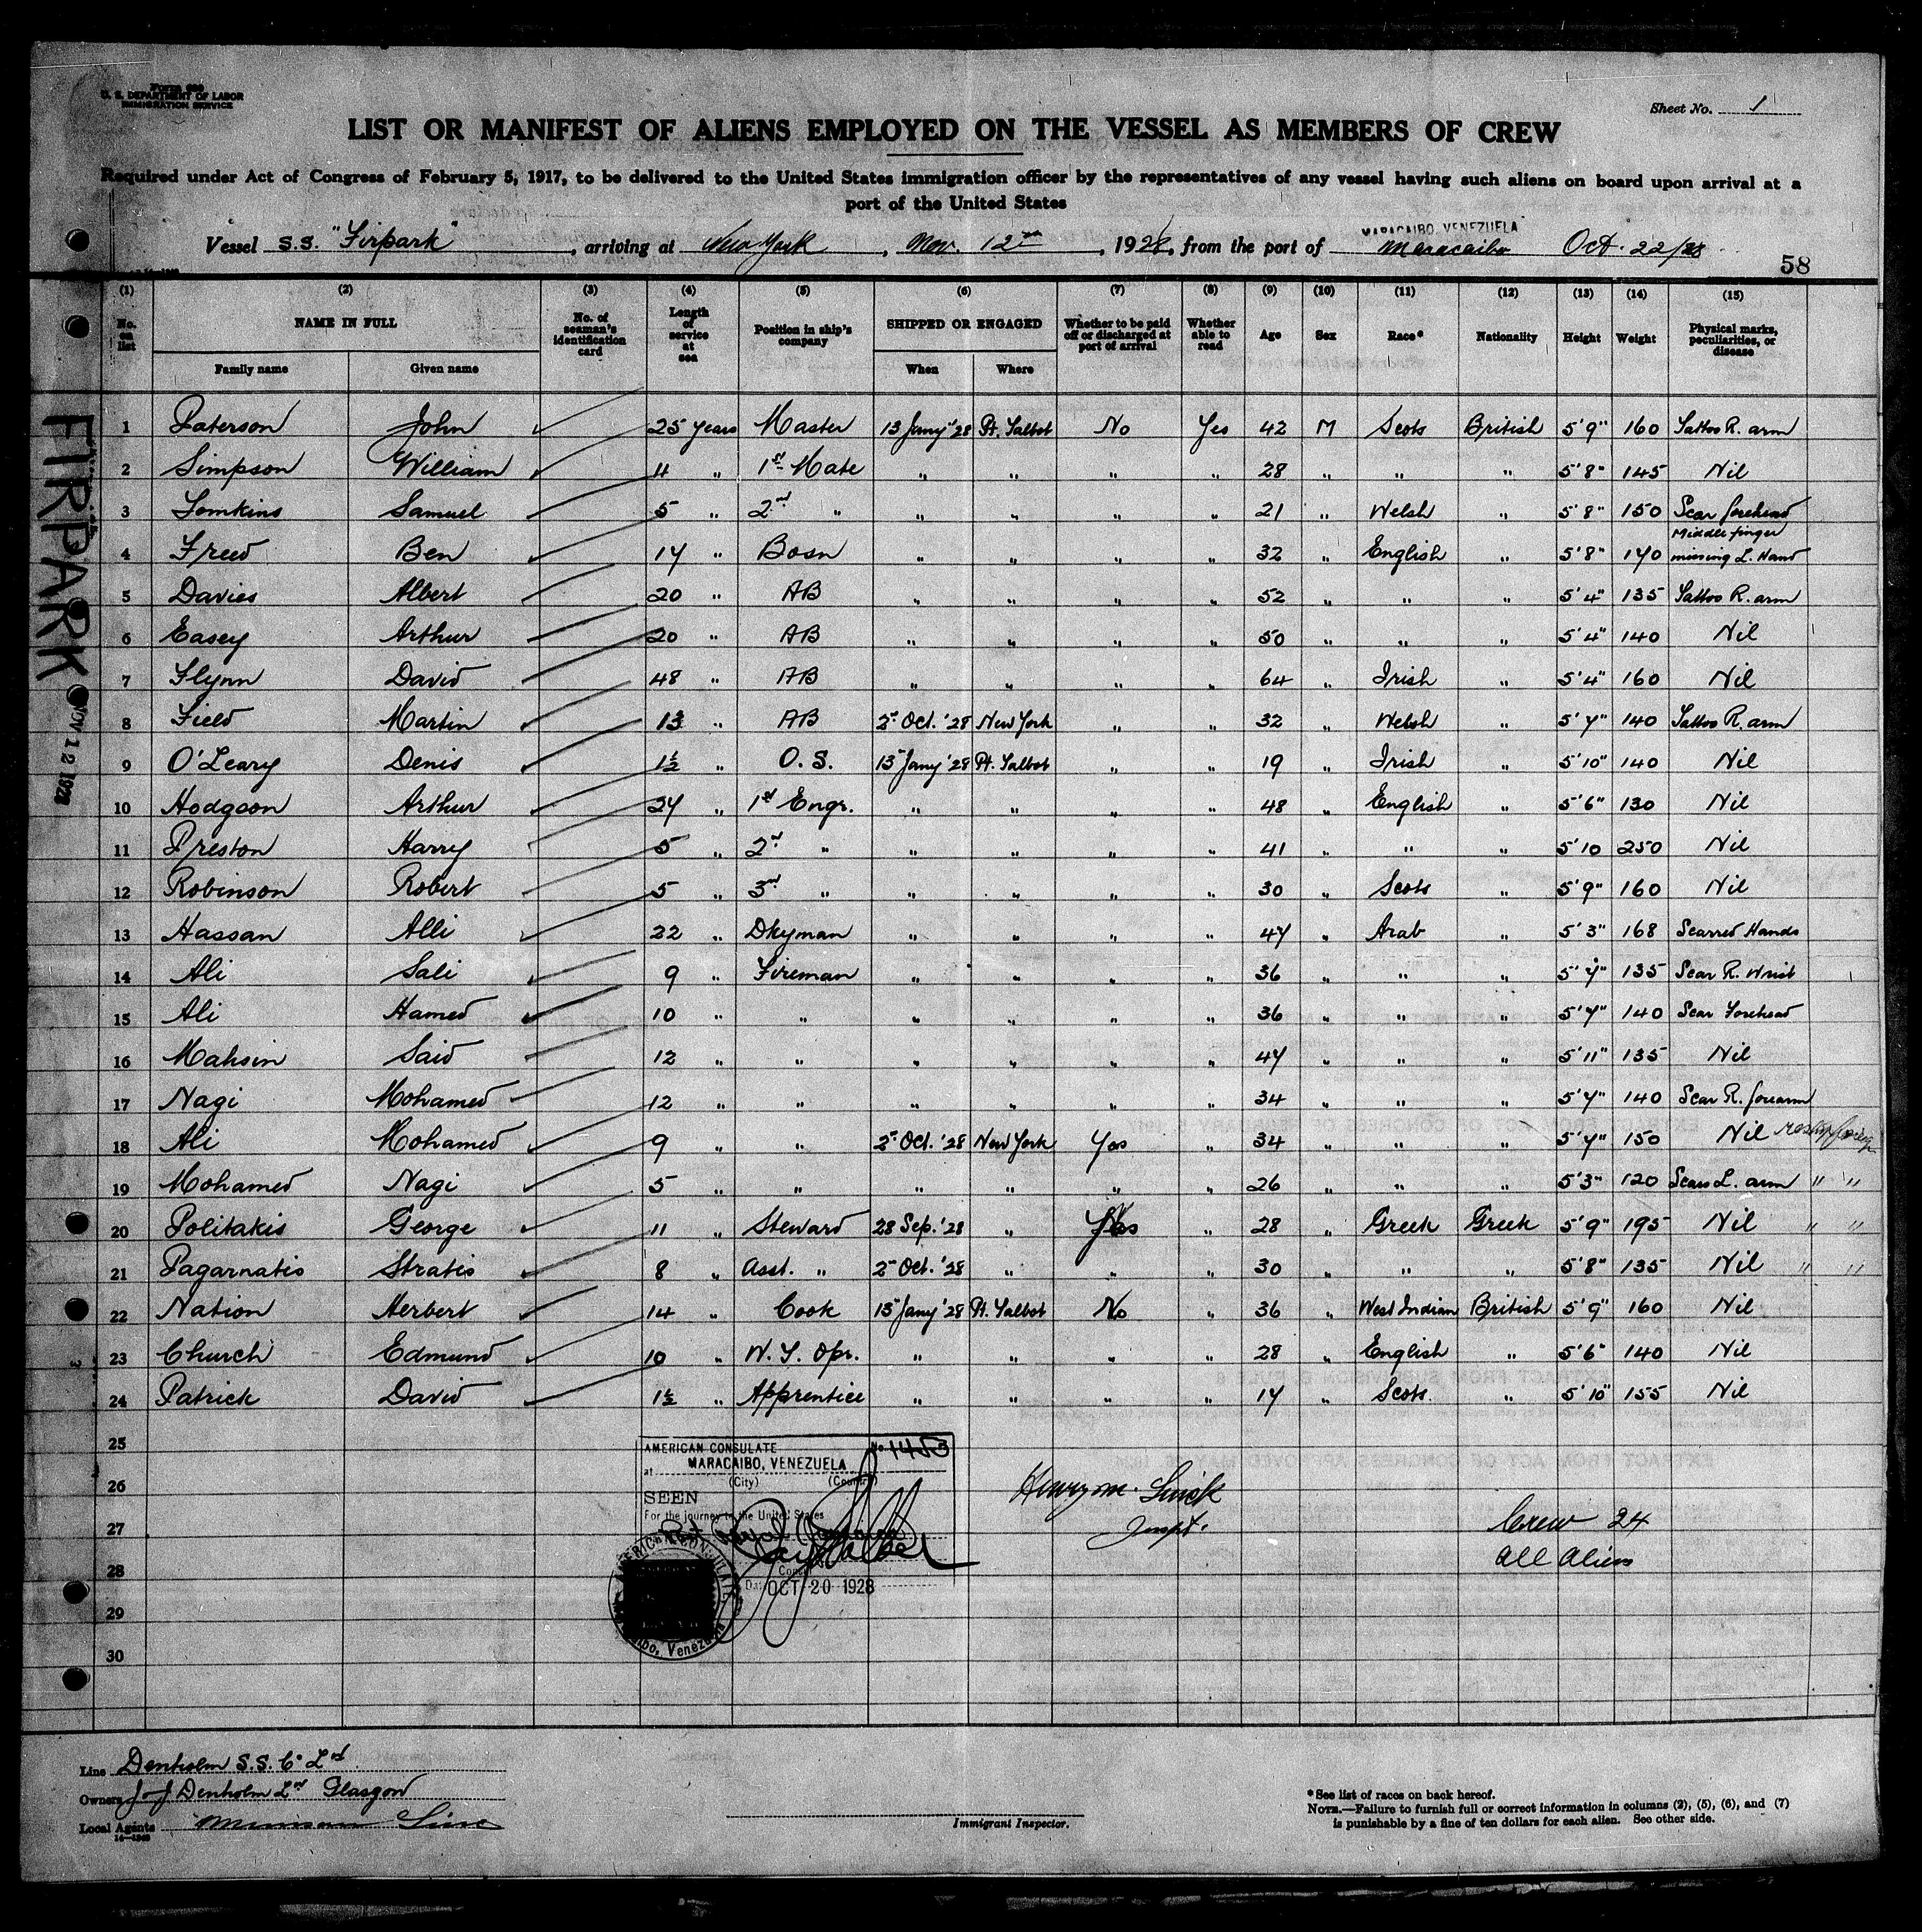 Form 689
U. S. DEPARTMENT OF LABOR
IMMIGRATION SERVICE
Sheet No. 1
LIST OR MANIFEST OF ALIENS EMPLOYED ON THE VESSEL AS MEMBERS OF CREW
Required under Act of Congress of February 5, 1917, to be delivered to the United States immigration officer by the representatives of any vessel having such aliens on board upon arrival at a
port of the United States
MARACAIBO, VENEZUELA
Vessel S.S. "Firpark", arriving at New York, Nov. 12th, 1928, from the port of Maracaibo Oct. 22/28
58
(1) (2) (3) (4) (5) (6) (7) (8) (9) (10) (11) (12) (13) (14) (15)
No. on list NAME IN FULL No. of seaman's identification card Length of service at sea Position in ship's company SHIPPED OR ENGAGED Whether to be paid off or discharged at port of arrival Whether able to read Age Sex Race* Nationality Height Weight Physical marks, peculiarities, or disease
Family name Given name When Where
1 Paterson John 25 years Master 13 Jany '28 Pt. Talbot No Yes 42 M Scots British 5'9" 160 Tattoo R. arm
2 Simpson William 4 " 1st Mate " " " " 28 " " " 5'8" 145 Nil
3 Tomkins Samuel 5 " 2nd " " " " " 21 " Welsh " 5'8" 150 Scar forehead
4 Freed Ben 14 " Bosn " " " " 32 " English " 5'8" 140 Middle finger missing L. Hand
5 Davies Albert 20 " AB " " " " 52 " " " 5'4" 135 Tattoo R. arm
6 Easey Arthur 20 " AB " " " " 50 " " " 5'4" 140 Nil
7 Flynn David 48 " AB " " " " 64 " Irish " 5'4" 160 Nil
8 Field Martin 13 " AB 2nd Oct. '28 New York " " 32 " Welsh " 5'7" 140 Tattoo R. arm
9 O'Leary Denis 1½ " O. S. 13 Jany '28 Pt. Talbot " " 19 " Irish " 5'10" 140 Nil
10 Hodgson Arthur 27 " 1st Engr. " " " " 48 " English " 5'6" 130 Nil
11 Preston Harry 5 " 2nd " " " " " 41 " " " 5'10 250 Nil
12 Robinson Robert 5 " 3rd " " " " " 30 " Scots " 5'9" 160 Nil
13 Hassan Alli 22 " Dkyman " " " " 47 " Arab " 5'3" 168 Scarred Hands
14 Ali Sali 9 " Fireman " " " " 36 " " " 5'7" 135 Scar R. Wrist
15 Ali Hamed 10 " " " " " " 36 " " " 5'7" 140 Scar Forehead
16 Mahsin Said 12 " " " " " " 47 " " " 5'11" 135 Nil
17 Nagi Mohamed 12 " " " " " " 34 " " " 5'7" 140 Scar R. forearm
18 Ali Mohamed 9 " " 2nd Oct. '28 New York Yes " 34 " " " 5'7" 150 Nil
19 Mohamed Nagi 5 " " " " " " 26 " " " 5'3" 120 Scars L. arm " "
20 Politakis George 11 " Steward 28 Sep. '28 " Yes " 28 " Greek Greek 5'9" 195 Nil " "
21 Pagarnatis Stratis 8 " Asst. " 2nd Oct. '28 " " " 30 " " " 5'8" 135 Nil " "
22 Nation Herbert 14 " Cook 13 Jany '28 Pt. Talbot No " 36 " West Indian British 5'9" 160 Nil
23 Church Edmund 10 " W. T. Opr. " " " " 28 " English " 5'6" 140 Nil
24 Patrick David 1½ " Apprentice " " " " 17 " Scots. " 5'10" 155 Nil
25
26
27
28
29
30
FIRPARK
NOV 12 1928
AMERICAN CONSULATE No. 1453
at MARACAIBO, VENEZUELA
(City) (Country)
SEEN
For the journey to the United States
Consul
Date OCT 20 1928
AMERICAN CONSULATE
Venezuela
Inspt.
Crew 24
all aliens
Line Denholm S.S. Co Ld
Owners J & J Denholm Ld Glasgow
Local Agents Munson Line
14—1948
Immigrant Inspector.
*See list of races on back hereof.
NOTE.—Failure to furnish full or correct information in columns (2), (5), (6), and (7)
is punishable by a fine of ten dollars for each alien. See other side.